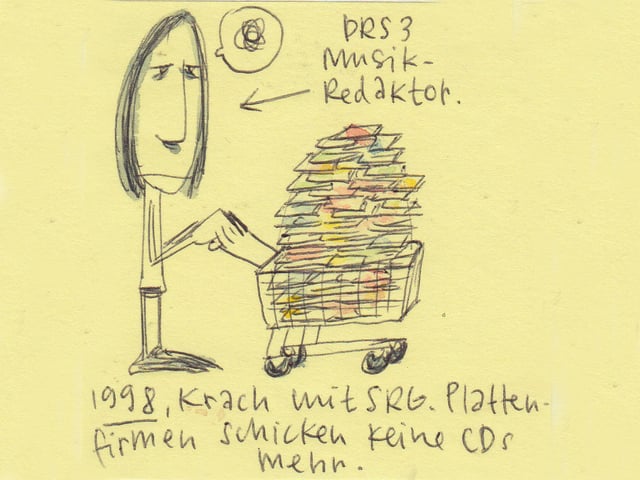 DRS 3
Musik-
Redaktor.
1998, Krach mit SRG. Platten-
firmen schicken keine CDs
mehr.